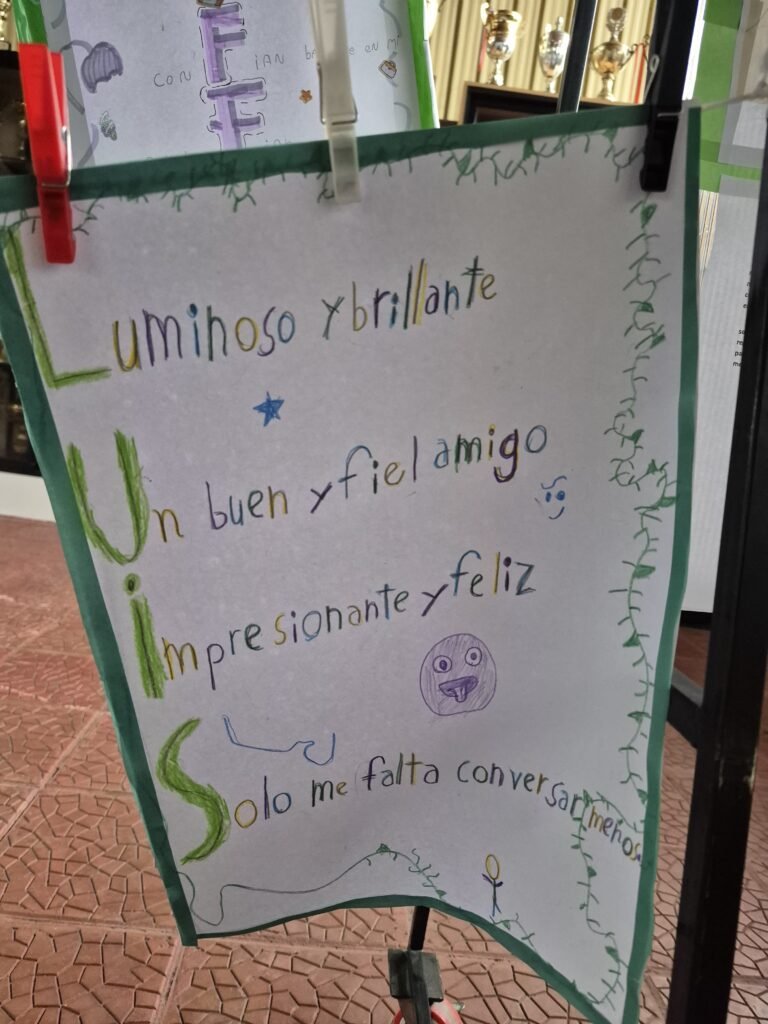 CON
EN
Luminoso y brillante
Un buen y fiel amigo
impresionante y feliz
Solo me falta conversar menos.